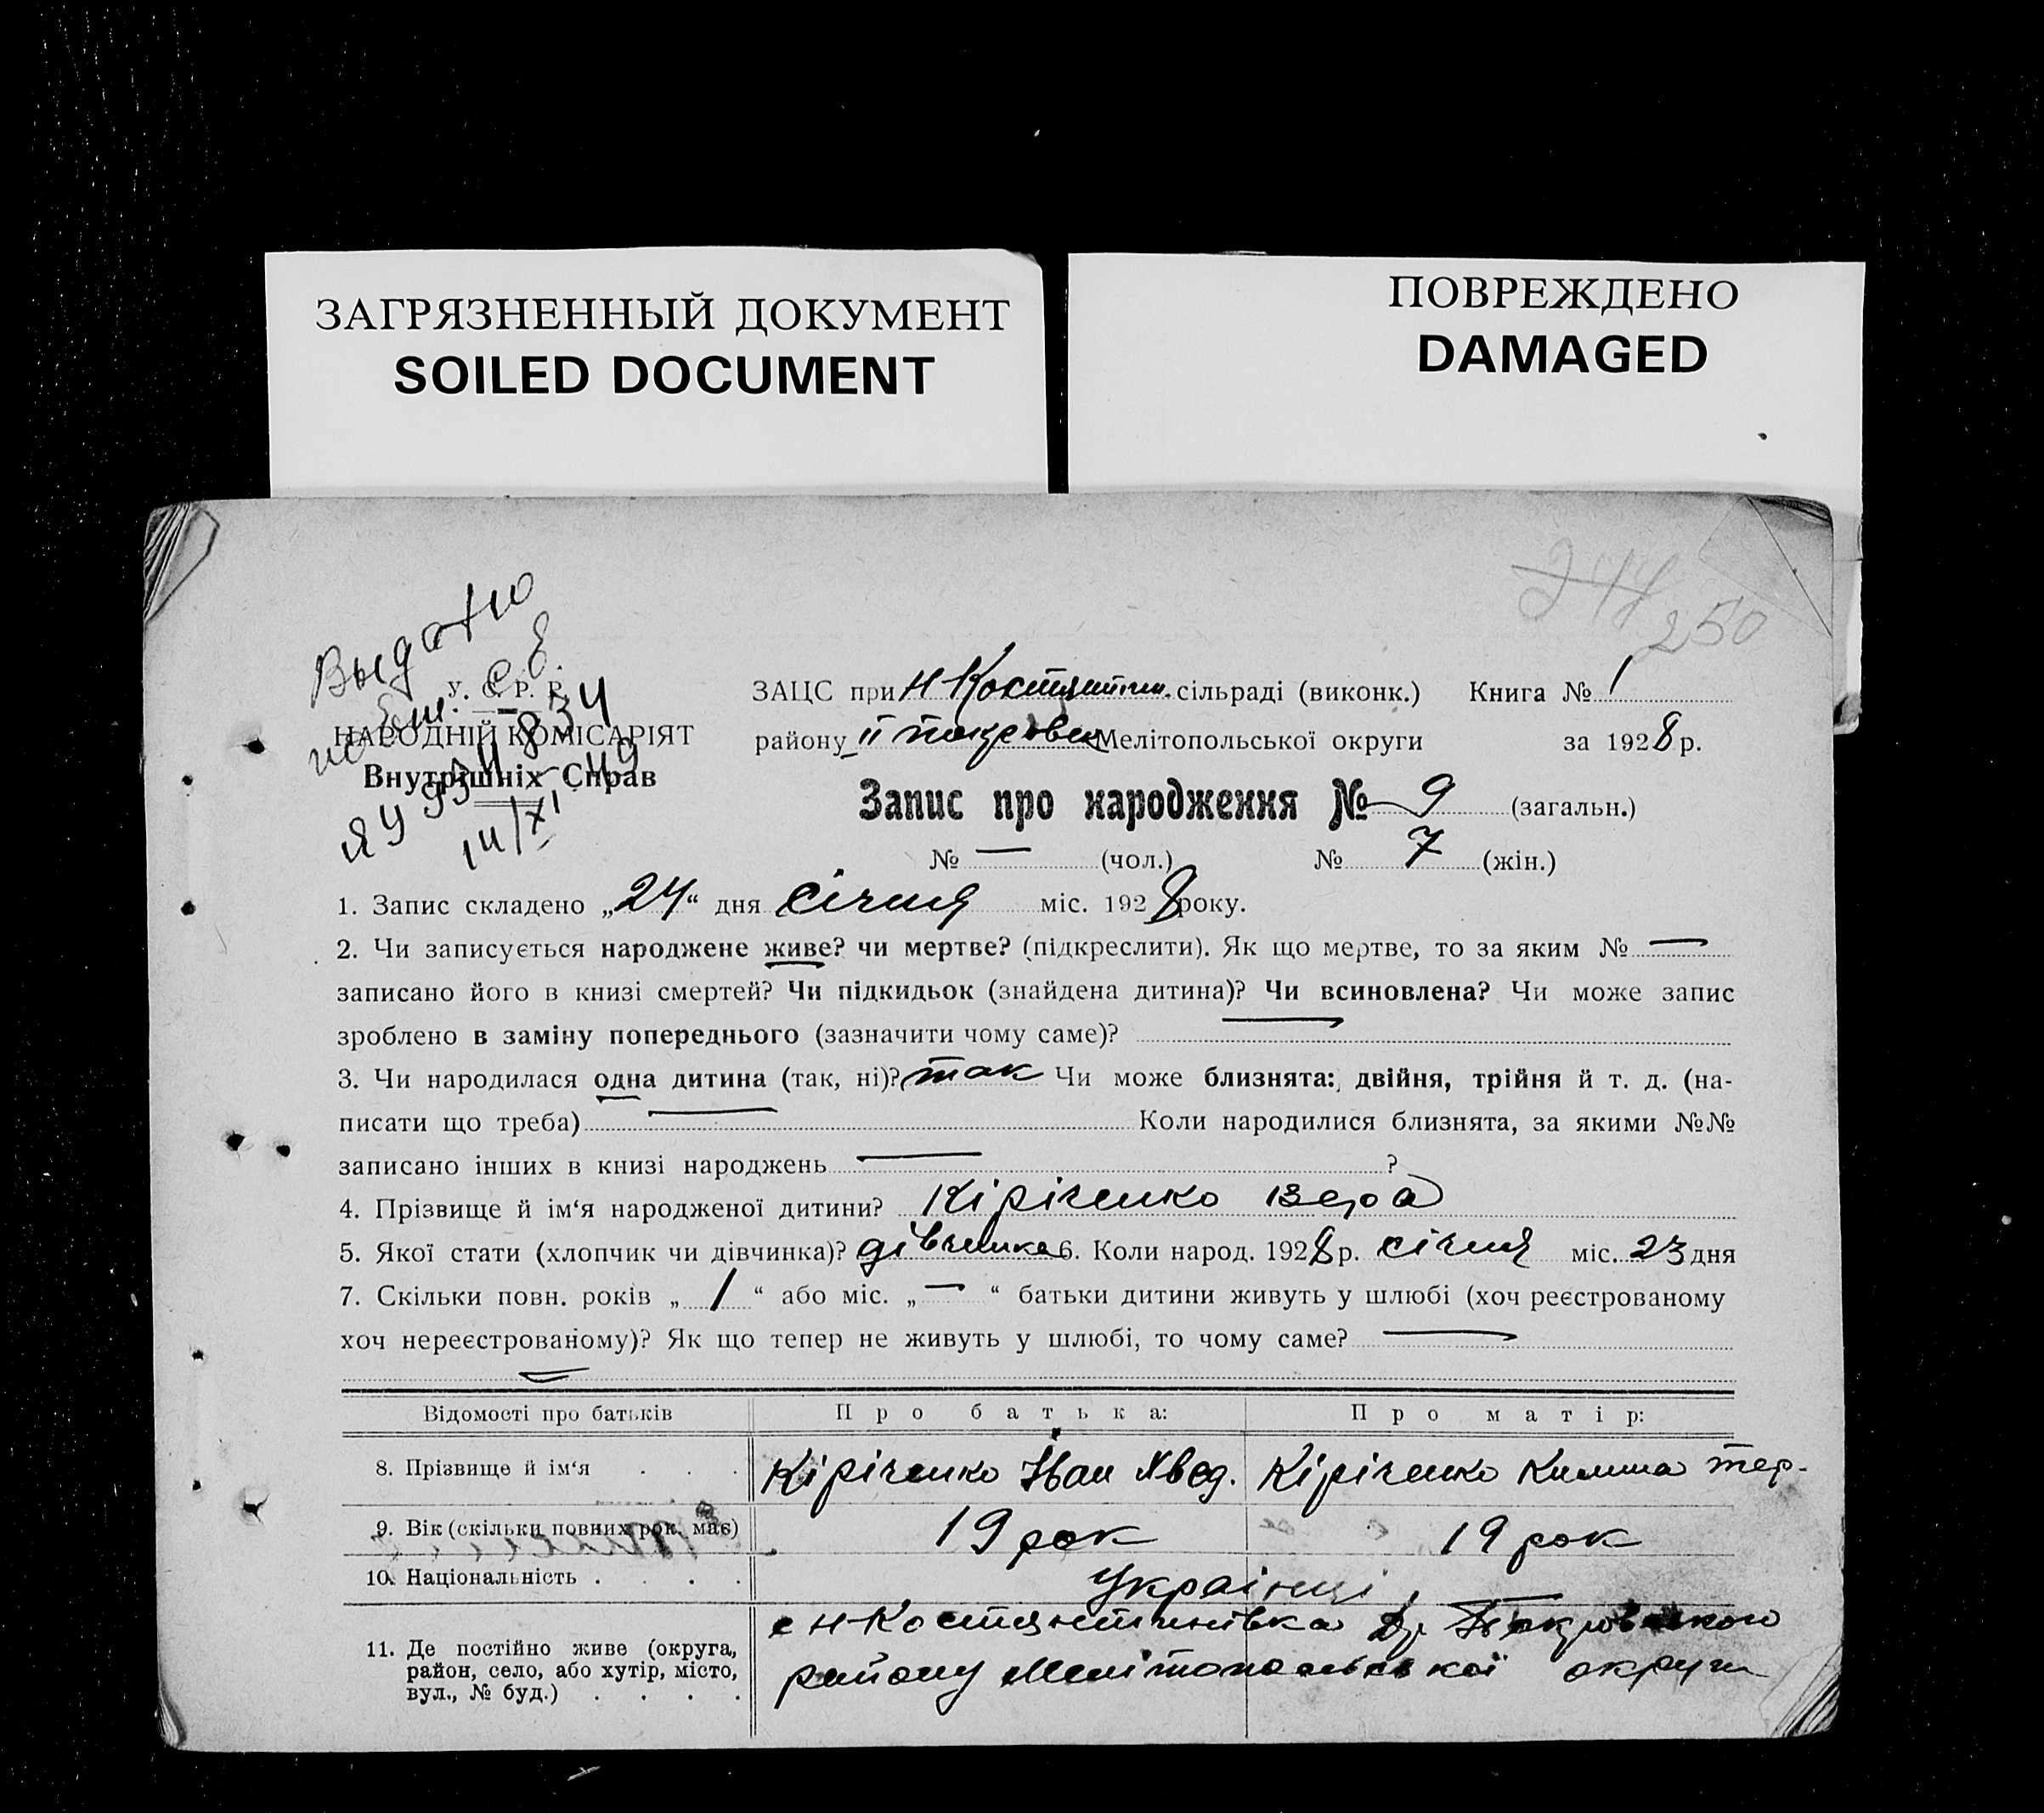 ЗАГРЯЗНЕННЫЙ ДОКУМЕНТ
SOILED DOCUMENT
ПОВРЕЖДЕНО
DAMAGED
244
250
Выдано
У. С. Р. Р.
НАРОДНІЙ КОМІСАРІЯТ
Внутрішніх Справ
14/XI 49
ЗАЦС при Н Костянтин. сільраді (виконк.) Книга № 1
району Покровск Мелітопольської округи за 1928 р.
Запис про народження № 9 (загальн.)
№ — (чол.) № 7 (жін.)
1. Запис складено „24“ дня січня міс. 1928 року.
2. Чи записується народжене живе? чи мертве? (підкреслити). Як що мертве, то за яким № —
записано його в книзі смертей? Чи підкидьок (знайдена дитина)? Чи всиновлена? Чи може запис
зроблено в заміну попереднього (зазначити чому саме)? —
3. Чи народилася одна дитина (так, ні)? так Чи може близнята: двійня, трійня й т. д. (на-
писати що треба) — Коли народилися близнята, за якими №№
записано інших в книзі народжень — ?
4. Прізвище й ім‘я народженої дитини? Кіріченко Вера
5. Якої стати (хлопчик чи дівчинка)? дівчинка 6. Коли народ. 1928 р. січня міс. 23 дня
7. Скільки повн. років „ 1 “ або міс. „ — “ батьки дитини живуть у шлюбі (хоч реєстрованому
хоч нереєстрованому)? Як що тепер не живуть у шлюбі, то чому саме? —
Відомості про батьків Про батька: Про матір:
8. Прізвище й ім‘я . . . Кіріченко Іван Хвед. Кіріченко Килина Тер.
9. Вік (скільки повних рок. має) 19 рок 19 рок
10. Національність . . . . Українці
11. Де постійно живе (округа, с Н Костянтинівка Др. Покровського
район, село, або хутір, місто, району Мелітопольської округи
вул., № буд.) . . . .